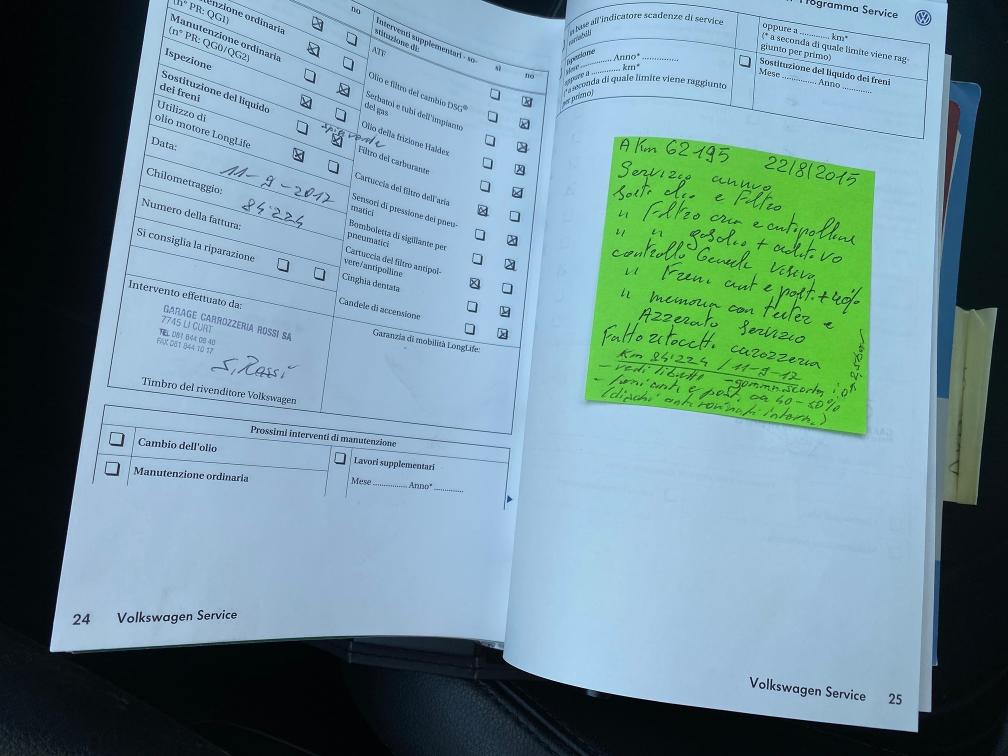 (n° PR: QG1)
Manutenzione ordinaria
(n° PR: QG0/QG2)
Ispezione
Sostituzione del liquido
dei freni
Utilizzo di
olio motore LongLife
Data:
11-9-2017
Chilometraggio:
84'224
Numero della fattura:
Si consiglia la riparazione
Intervento effettuato da:
GARAGE CARROZZERIA ROSSI SA
7745 LI CURT
TEL 081 844 08 40
FAX 081 844 10 17
S. Rossi
Timbro del rivenditore Volkswagen
no
Interventi supplementari - so-
stituzione di:
sì no
ATF
Olio e filtro del cambio DSG®
Serbatoi e tubi dell'impianto
del gas
Olio della frizione Haldex
Filtro del carburante
Cartuccia del filtro dell'aria
Sensori di pressione dei pneu-
matici
Bomboletta di sigillante per
pneumatici
Cartuccia del filtro antipol-
vere/antipolline
Cinghia dentata
Candele di accensione
Garanzia di mobilità LongLife:
Prossimi interventi di manutenzione
Cambio dell'olio
Manutenzione ordinaria
Lavori supplementari
Mese ............... Anno* ...........
24 Volkswagen Service
Programma Service
in base all'indicatore scadenze di service
variabili
Ispezione
Mese .............. Anno* ..............
oppure a ............ km*
(* a seconda di quale limite viene raggiunto
per primo)
oppure a ............ km*
(* a seconda di quale limite viene rag-
giunto per primo)
Sostituzione del liquido dei freni
Mese .............. Anno ............
A Km 62195 22/8/2015
Servizio annuo
Sost. olio e Filtro
" Filtro aria e antipolline
" " gasolio + additivo
controllo Generale visivo
" Freni ant e post. + 40%
" memoria con tester e
Azzerato Servizio
Fatto ritocchi carozzeria
Km 84'224 / 11-9-17
- vedi libretto
- freni ant. e post. ca 40-50%
(dischi ant. rovinati interni)
Volkswagen Service 25